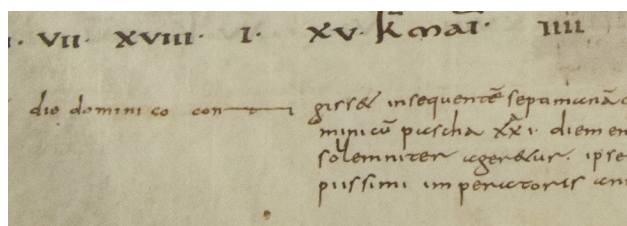 . VII · XVIII · I · XV · k̄ mai · IIII
die dominico conti giss& insequentē septimanā
minicū pascha xx̄i · diem en
solemniter ager&ur · ipse
piissimi imperatoris ani